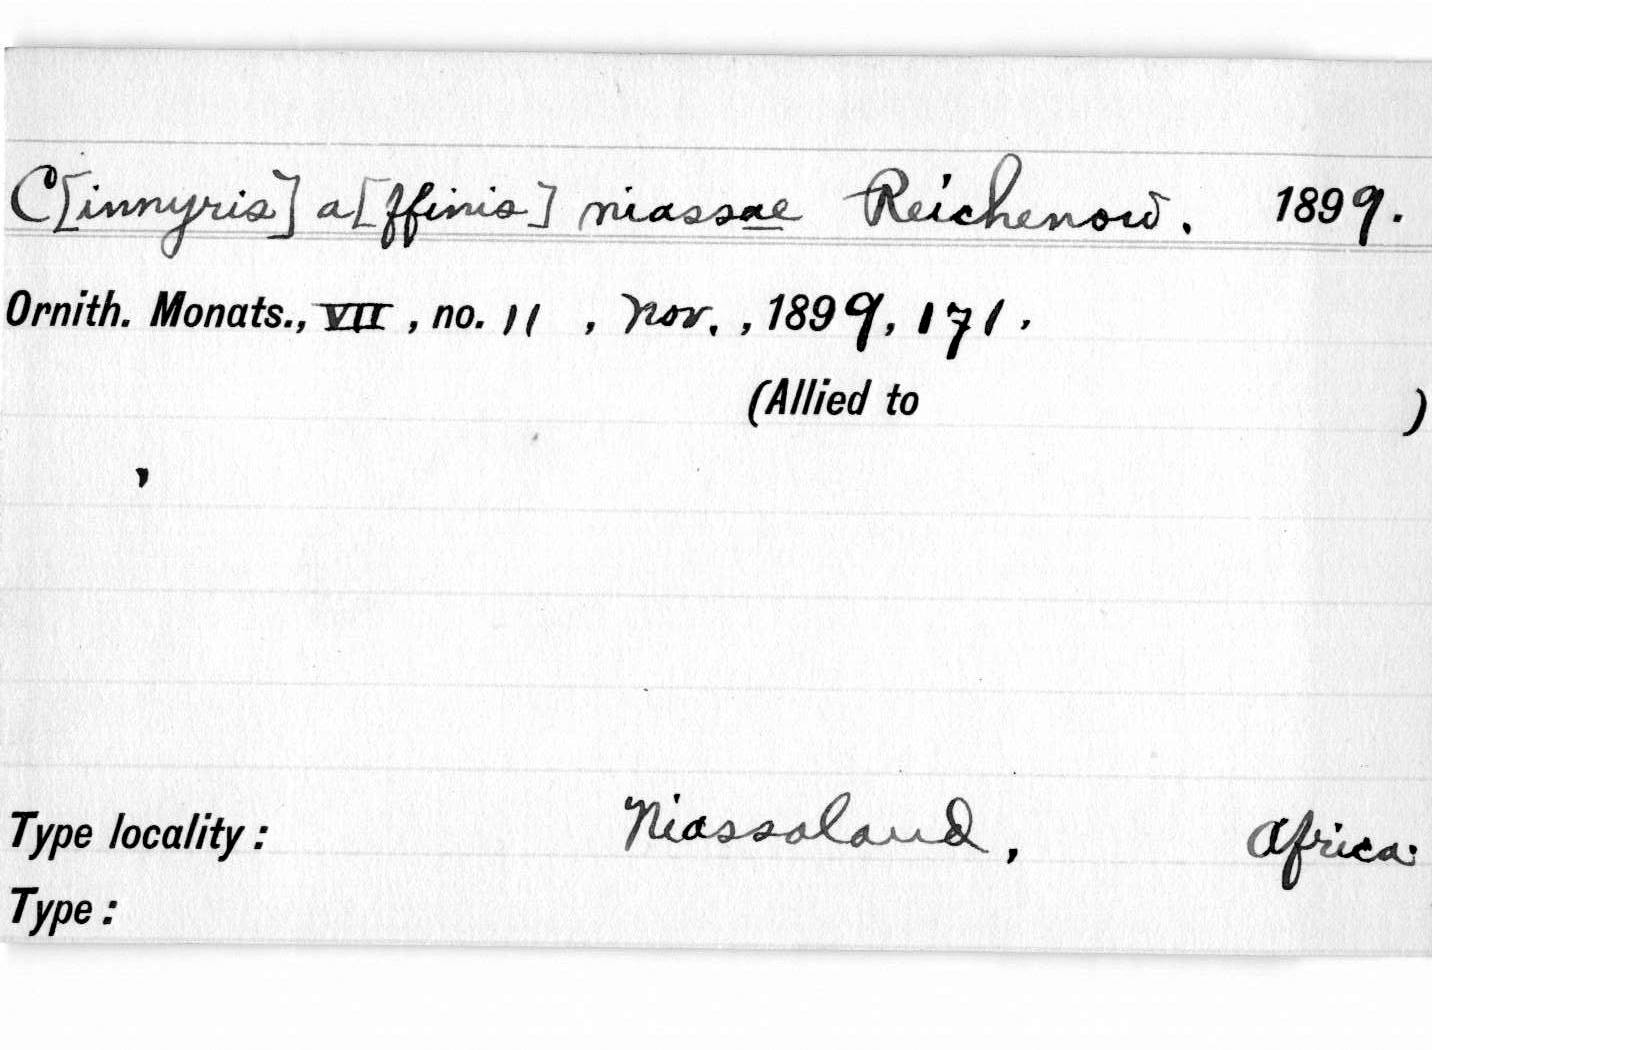 C[innyris] a[ffinis] niassae Reichenow. 1899.
Ornith. Monats., VII, no. 11, Nov., 1899, 171.
(Allied to )
,
Type locality: Niassaland, Africa.
Type: